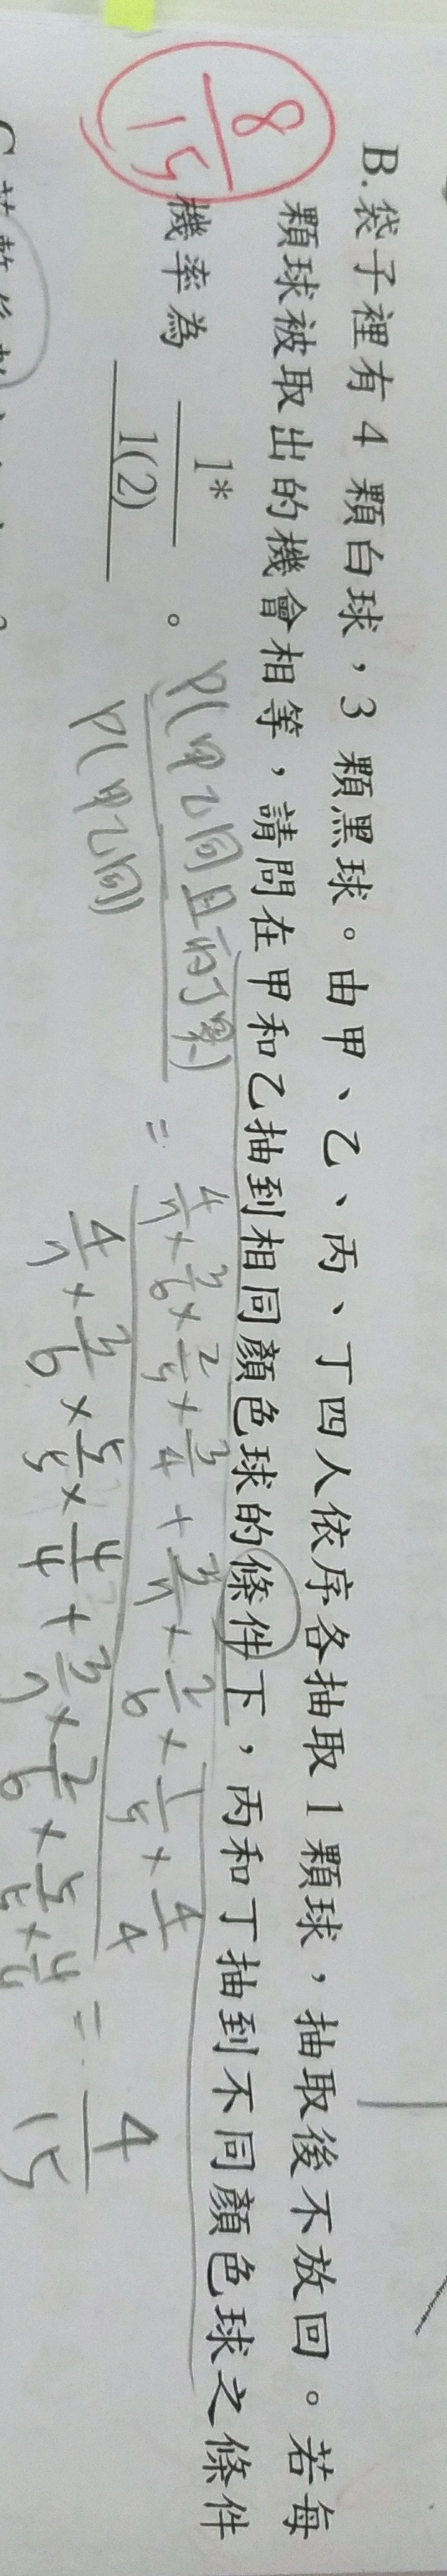 B.袋子裡有 4 顆白球，3 顆黑球。由甲、乙、丙、丁四人依序各抽取 1 顆球，抽取後不放回。若每
顆球被取出的機會相等，請問在甲和乙抽到相同顏色球的條件下，丙和丁抽到不同顏色球之條件
機率為 1* / 1(2) 。
8/15
P(甲乙同且丙丁異) / P(甲乙同) = (4/7×3/6×2/5×3/4 + 3/7×2/6×1/5×4/4) / (4/7×3/6×5/5×4/4 + 3/7×2/6×5/5×4/4) = 4/15